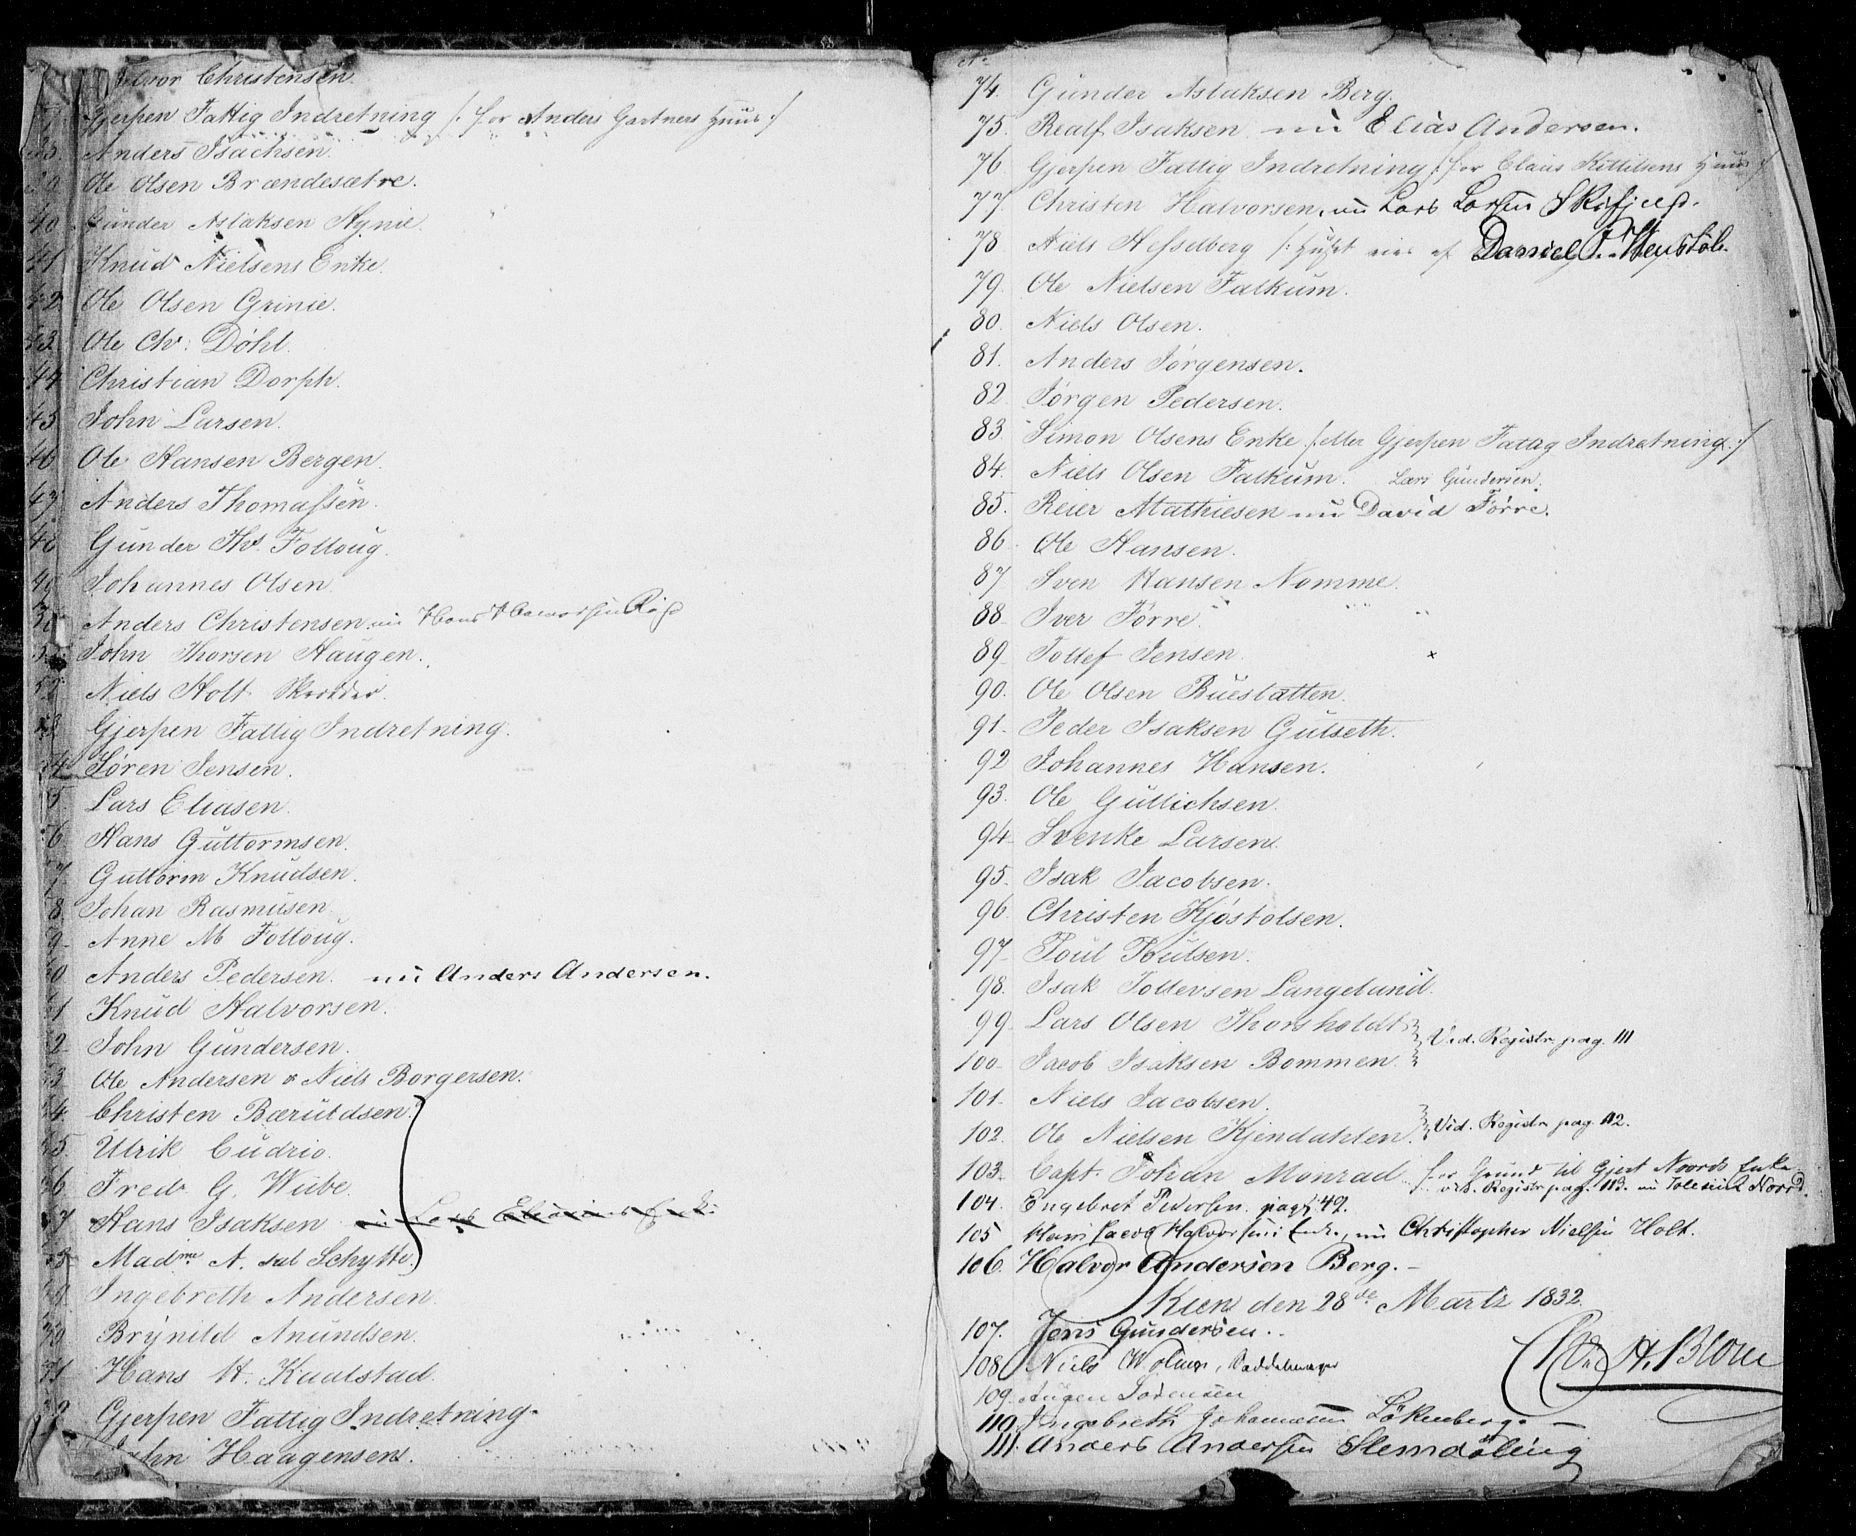 Christensen.
Gjerpen Fattig Indretning /: for Anders Gartners Huus :/
Anders Isachsen.
Ole Olsen Brændesætre.
40 Gunder Aslaksen Hynie.
41 Knud Nielsens Enke.
42 Ole Olsen Grinie.
43. Ole Chr: Döhl.
44 Christian Dorph.
45 John Larsen.
46 Ole Hansen Bergen.
47 Anders Thomassen.
48 Gunder Ths. Folloug.
49 Johannes Olsen
Anders Christensen nu Hans Halvorsen
John Thorsen Haugen.
52 Niels Holt Skræder.
53 Gjerpen Fattig Indretning.
54 Sören Jensen.
5 Lars Eliasen.
6 Hans Guttormsen.
7 Guttorm Knudsen.
8. Johan Rasmusen
9 Anne M Folloug.
60 Anders Pedersen. nu Anders Andersen.
61 Knud Halvorsen.
2 John Gundersen.
63 Ole Andersen & Niels Borgersen.
64. Christen Bæruldsen.
65 Ulrik Cudrio.
66 Fredr. G. Wibe.
67 Hans Isaksen
68 Madme A. sal Schytte.
69 Ingebreth Andersen.
70 Brynild Anundsen.
71 Hans H. Kaalstad.
72 Gjerpen Fattig Indretning.
John Haagensen.
No
74. Gunder Aslaksen Berg.
75. Realf Isaksen nu Elias Andersen.
76 Gjerpen Fattig Indretning /: for Claus Kittilsens Huus :/
77. Christen Halvorsen, nu Lars Larsen Skifjeld.
78 Niels Hesselberg /: Huset eies af Daniel P. Henstöl.
79. Ole Nielsen Falkum.
80. Niels Olsen.
81. Anders Jörgensen.
82 Jörgen Pedersen.
83 Simon Olsens Enke /: eller Gjerpen Fattig Indretning :/
84. Niels Olsen Falkum. Lars Gundersen.
85. Reier Mathiesen nu David Förre.
86. Ole Hansen.
87 Sven Hansen Nomme.
88 Iver Förre.
89 Tollef Jensen.
90. Ole Olsen Buestatten.
91. Peder Isaksen Gulseth.
92 Johannes Hansen.
93. Ole Gullichsen.
94. Svenke Larsen.
95. Isak Jacobsen.
96. Christen Kjöstolsen.
97. Poul Poulsen.
98. Isak Tollevsen Langelund.
99. Lars Olsen Thorsholdt } Vid. Registr. pag. 111
100. Jacob Isaksen Bommen.
101. Niels Jacobsen.
102. Ole Nielsen Kjendahlen. } Vid. Registr. pag. 112.
103. Capt. Johan Monrad for Grund til Gjert Noords Enke
vid. Registr. pag. 113. nu Noord.
104. Engebret Pedersen. pag: 49.
105 Hans Jacob Halvorsens Enke, nu Christopher Nielsen Holt.
106. Halvor Andersen Berg.
Skien den 28de Martz 1832.
107. Jens Gundersen.
Chr. H. Blom
108 Niels Saddelmager
109. Jörgen
110. Ingebreth Johannesen Lökenberg.
111. Anders Andersen Slemdal